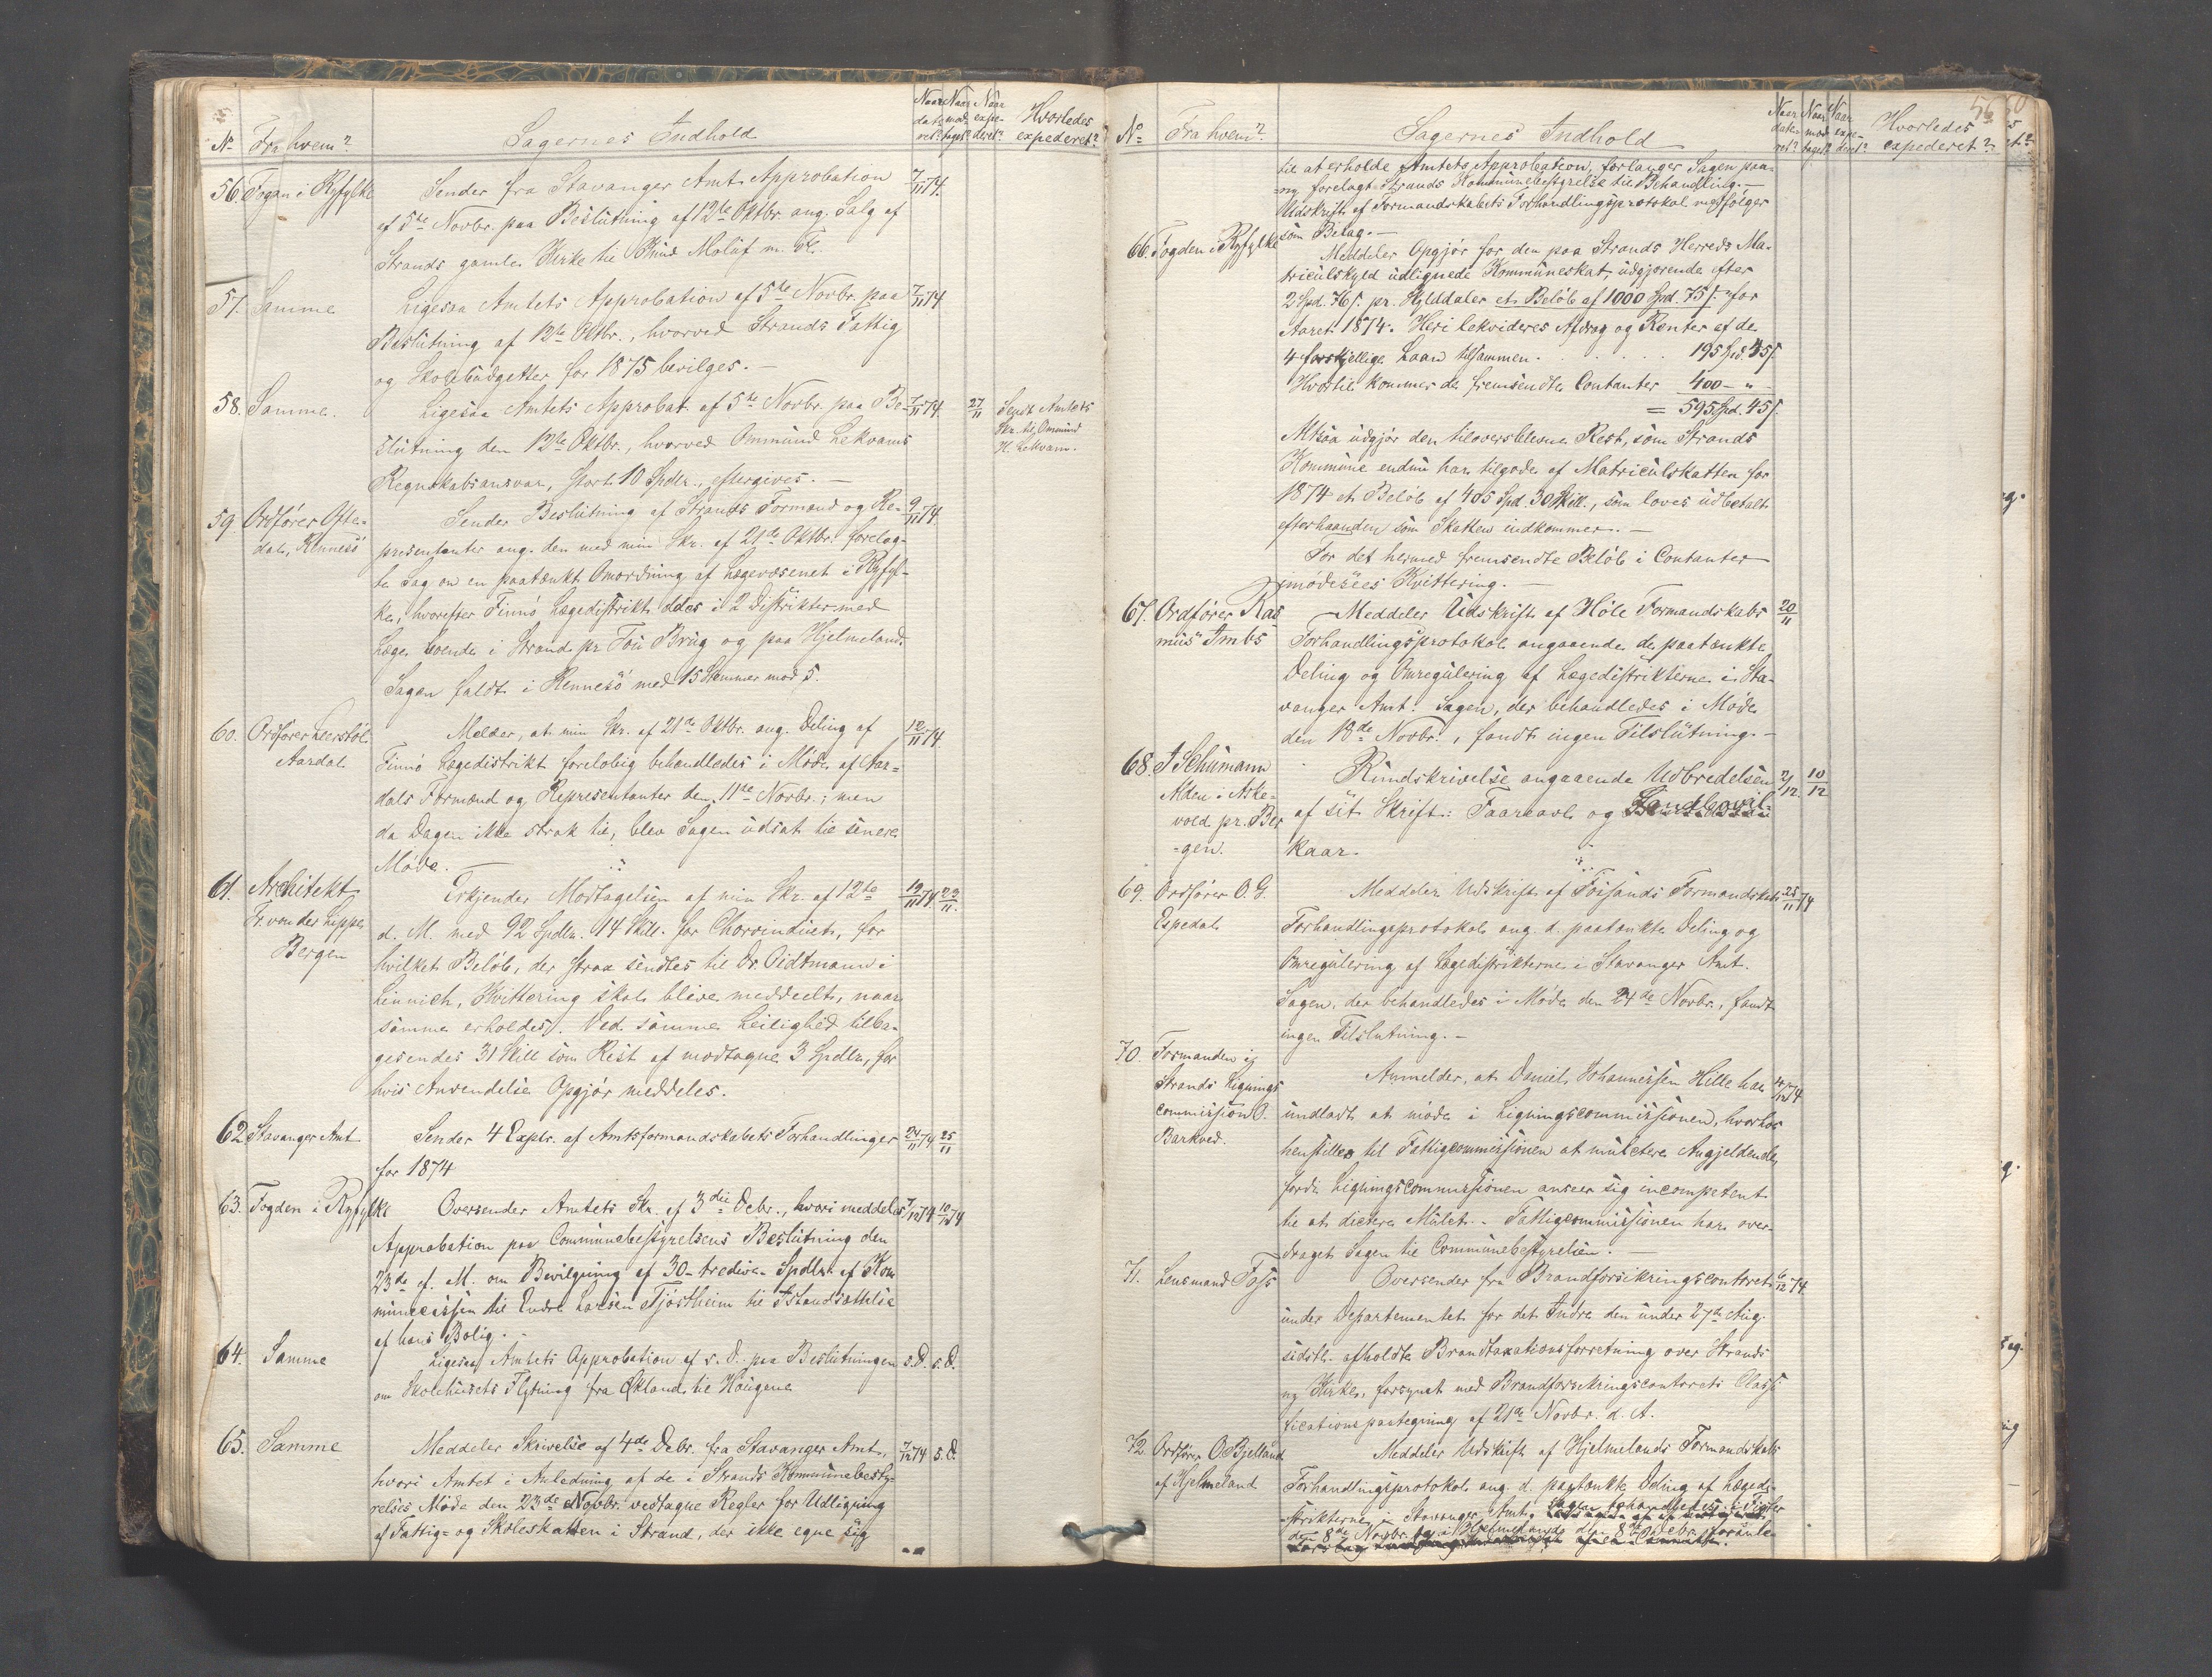 No. Fra hvem? Sagernes Indhold Naar dateret? Naar modtaget? Naar expederet? Hvorledes expederet?
56. Fogden i Ryfylke Sender fra Stavanger Amt Approbation 7/11 74.
af 5te Novbr. paa Beslutning af 12te Oktbr. ang. Salg af
Strands gamle Kirke til Knud Moluf m. Fl.
57. Samme Ligesaa Amtets Approbation af 5te Novbr. paa 7/11 74
Beslutning af 12te Oktbr., hvorved Strands Fattig
og Skolebudgetter for 1875 bevilges. —
58. Samme. Ligesaa Amtets Approbat. af 5te Novbr. paa Be- 7/11 74. 27/11 Sendt Amtets
slutning den 12te Oktbr., hvorved Ommund Lekvams Skr. til Ommund
H. Lekvam.
Regnskabsansvar, stort 10 Spdlr., eftergives. —
59. Ordfører Ofte- Sender Beslutning af Strands Formænd og Re- 9/11 74.
dal, Rennesö præsentanter ang. den med min Skr. af 21de Oktbr. forelag-
te Sag om en paatænkt Omordning af Lægevæsenet i Ryfyl-
ke, hvorefter Finnö Lægedistrikt deles i 2 Distrikter med
Læge boende i Strand pr. Tou Brug og paa Hjelmeland.
Sagen faldt i Rennesö med 15 Stemmer mod 5.
60. Ordfører Leerstöl Melder, at min Skr. af 21de Oktbr. ang. Deling af 12/11 74.
Aardal. Finnö Lægedistrikt foreløbig behandledes i Møde af Aar-
dals Formænd og Representanter den 11te Novbr.; men
da Dagen ikke strak til, blev Sagen udsat til senere
Møde. —
61. Architekt Erkjender Modtagelsen af min Skr. af 12te 19/11 74 23/11.
Fr. von der Lippe d. M. med 92 Spdlr. 14 Skill. for Chorvinduet, for
Bergen hvilket Beløb, der strax sendtes til Dr. Oidtmann i
Linnich, Kvittering skal blive meddeelt, naar
samme erholdes. Ved samme Leilighed tilba-
gesendes 31 Skill som Rest af modtagne 3 Spdlr, for
hvis Anvendelse Opgjör meddeles.
62. Stavanger Amt Sender 4 Explr. af Amtsformandskabets Forhandlinger 24/11 74 25/11
for 1874
63. Fogden i Ryfylke Oversender Amtets Skr. af 3die Debr., hvori meddeles 7/12 74 10/12 74
Approbation paa Communebestyrelsens Beslutning den
23de f. M. om Bevilgning af 30 - tredive - Spdlr. af Kom
munecassen til Endre Larsen Tjöstheim til Istandsættelse
af hans Bolig. -
64. Samme Ligesaa Amtets Approbation af s. D. paa Beslutningen s. D. s. D.
om Skolehusets Flytning fra Økland til Haugene
65. Samme Meddeler Skrivelse af 4de Debr. fra Stavanger Amt, 7/12 74 s. D.
hvori Amtet i Anledning af de i Strands Kommunebesty-
relses Møde den 23de Novbr. vedtagne Regler for Udligning
af Fattig- og Skoleskatten i Strand, der ikke egne sig
No. Fra hvem? Sagernes Indhold Naar dateret? Naar modtaget? Naar expederet? Hvorledes expederet?
til at erholde Amtets Approbation, forlanger Sagen paa-
ny forelagt Strands Kommunebestyrelse til Behandling. —
Udskrift af Formandskabets Forhandlingsprotokol medfølger
som Bilag. —
66. Fogden i Ryfylke Meddeler Opgjør for den paa Strands Herreds Ma-
triculskyld udlignede Kommuneskat, udgjørende efter
2 Spd. 76 s. pr. Skylddaler et Beløb af 1000 Spd. 75 s. for
Aaret 1874. Heri lekvideres Afdrag og Renter af de
4 forskjellige Laan tilsammen . . . . . . 195 Spd. 45 s.
Hvortil kommer de fremsendte Contanter 400 - " -
= 595 Spd. 45 s.
Altsaa udgjör den tiloversblevne Rest, som Strands
Kommune endnu har tilgode af Matriculskatten for
1874 et Beløb af 405 Spd 30 Skill., som loves udbetalt
efterhaanden som Skatten indkommer. —
For det hermed fremsendte Beløb i Contanter
imødesees Kvittering. —
67. Ordfører Ras Meddeler Udskrift af Höle Formandskabs 20/11
mus Ims Forhandlingsprotokol angaaende de paatænkte
Deling og Omregulering af Lægedistrikterne i Sta-
vanger Amt. Sagen, der behandledes i Møde
den 18de Novbr., fandt ingen Tilslutning. —
68. J Schumann Rundskrivelse angaaende Udbredelsen 2/12. 10/12
Alden i Aske- af sit Skrift: Faareavl og
vold pr. Ber kaar.
-gen.
69. Ordfører O. G. Meddeler Udskrift af Fossands Formandskabs 25/11 74
Espedal. Forhandlingsprotokol ang. d. paatænkte Deling og
Omregulering af Lægedistrikterne i Stavanger Amt.
Sagen, der behandledes i Møde den 24de Novbr., fandt
ingen Tilslutning. —
70. Formanden i Anmelder, at Daniel Johannessen Hille har 4/12 74
Strands Lignings undladt at møde i Ligningscommissionen, hvorhos
commission O. henstilles til Fattigcommissionen at mulctere Angjeldende,
Barkved. fordi Ligningscommissionen anseer sig incompetent
til at dictere Mulct. - Fattigcommissionen har over-
draget Sagen til Communebestyrelsen. —
71. Lensmand Foss Oversender fra Brandforsikringscontoret 6/12 74.
under Departementet for det Indre den under 27de Aug.
sidstl. afholdte Brandtaxationsforretning over Strands
ny Kirke, forsynet med Brandforsikringscontorets Classi
ficationspaategning af 21de Novbr. d. A.
72. Ordfører O. Bjelland Meddeler Udskrift af Hjelmelands Formandskabs
af Hjelmeland Forhandlingsprotokol ang. d. paatænkte Deling af Læged-
istrikterne i Stavanger Amt. Sagen behandledes i Fister
den 8de Novbr. og i Hjelmeland d. 8de Debr.